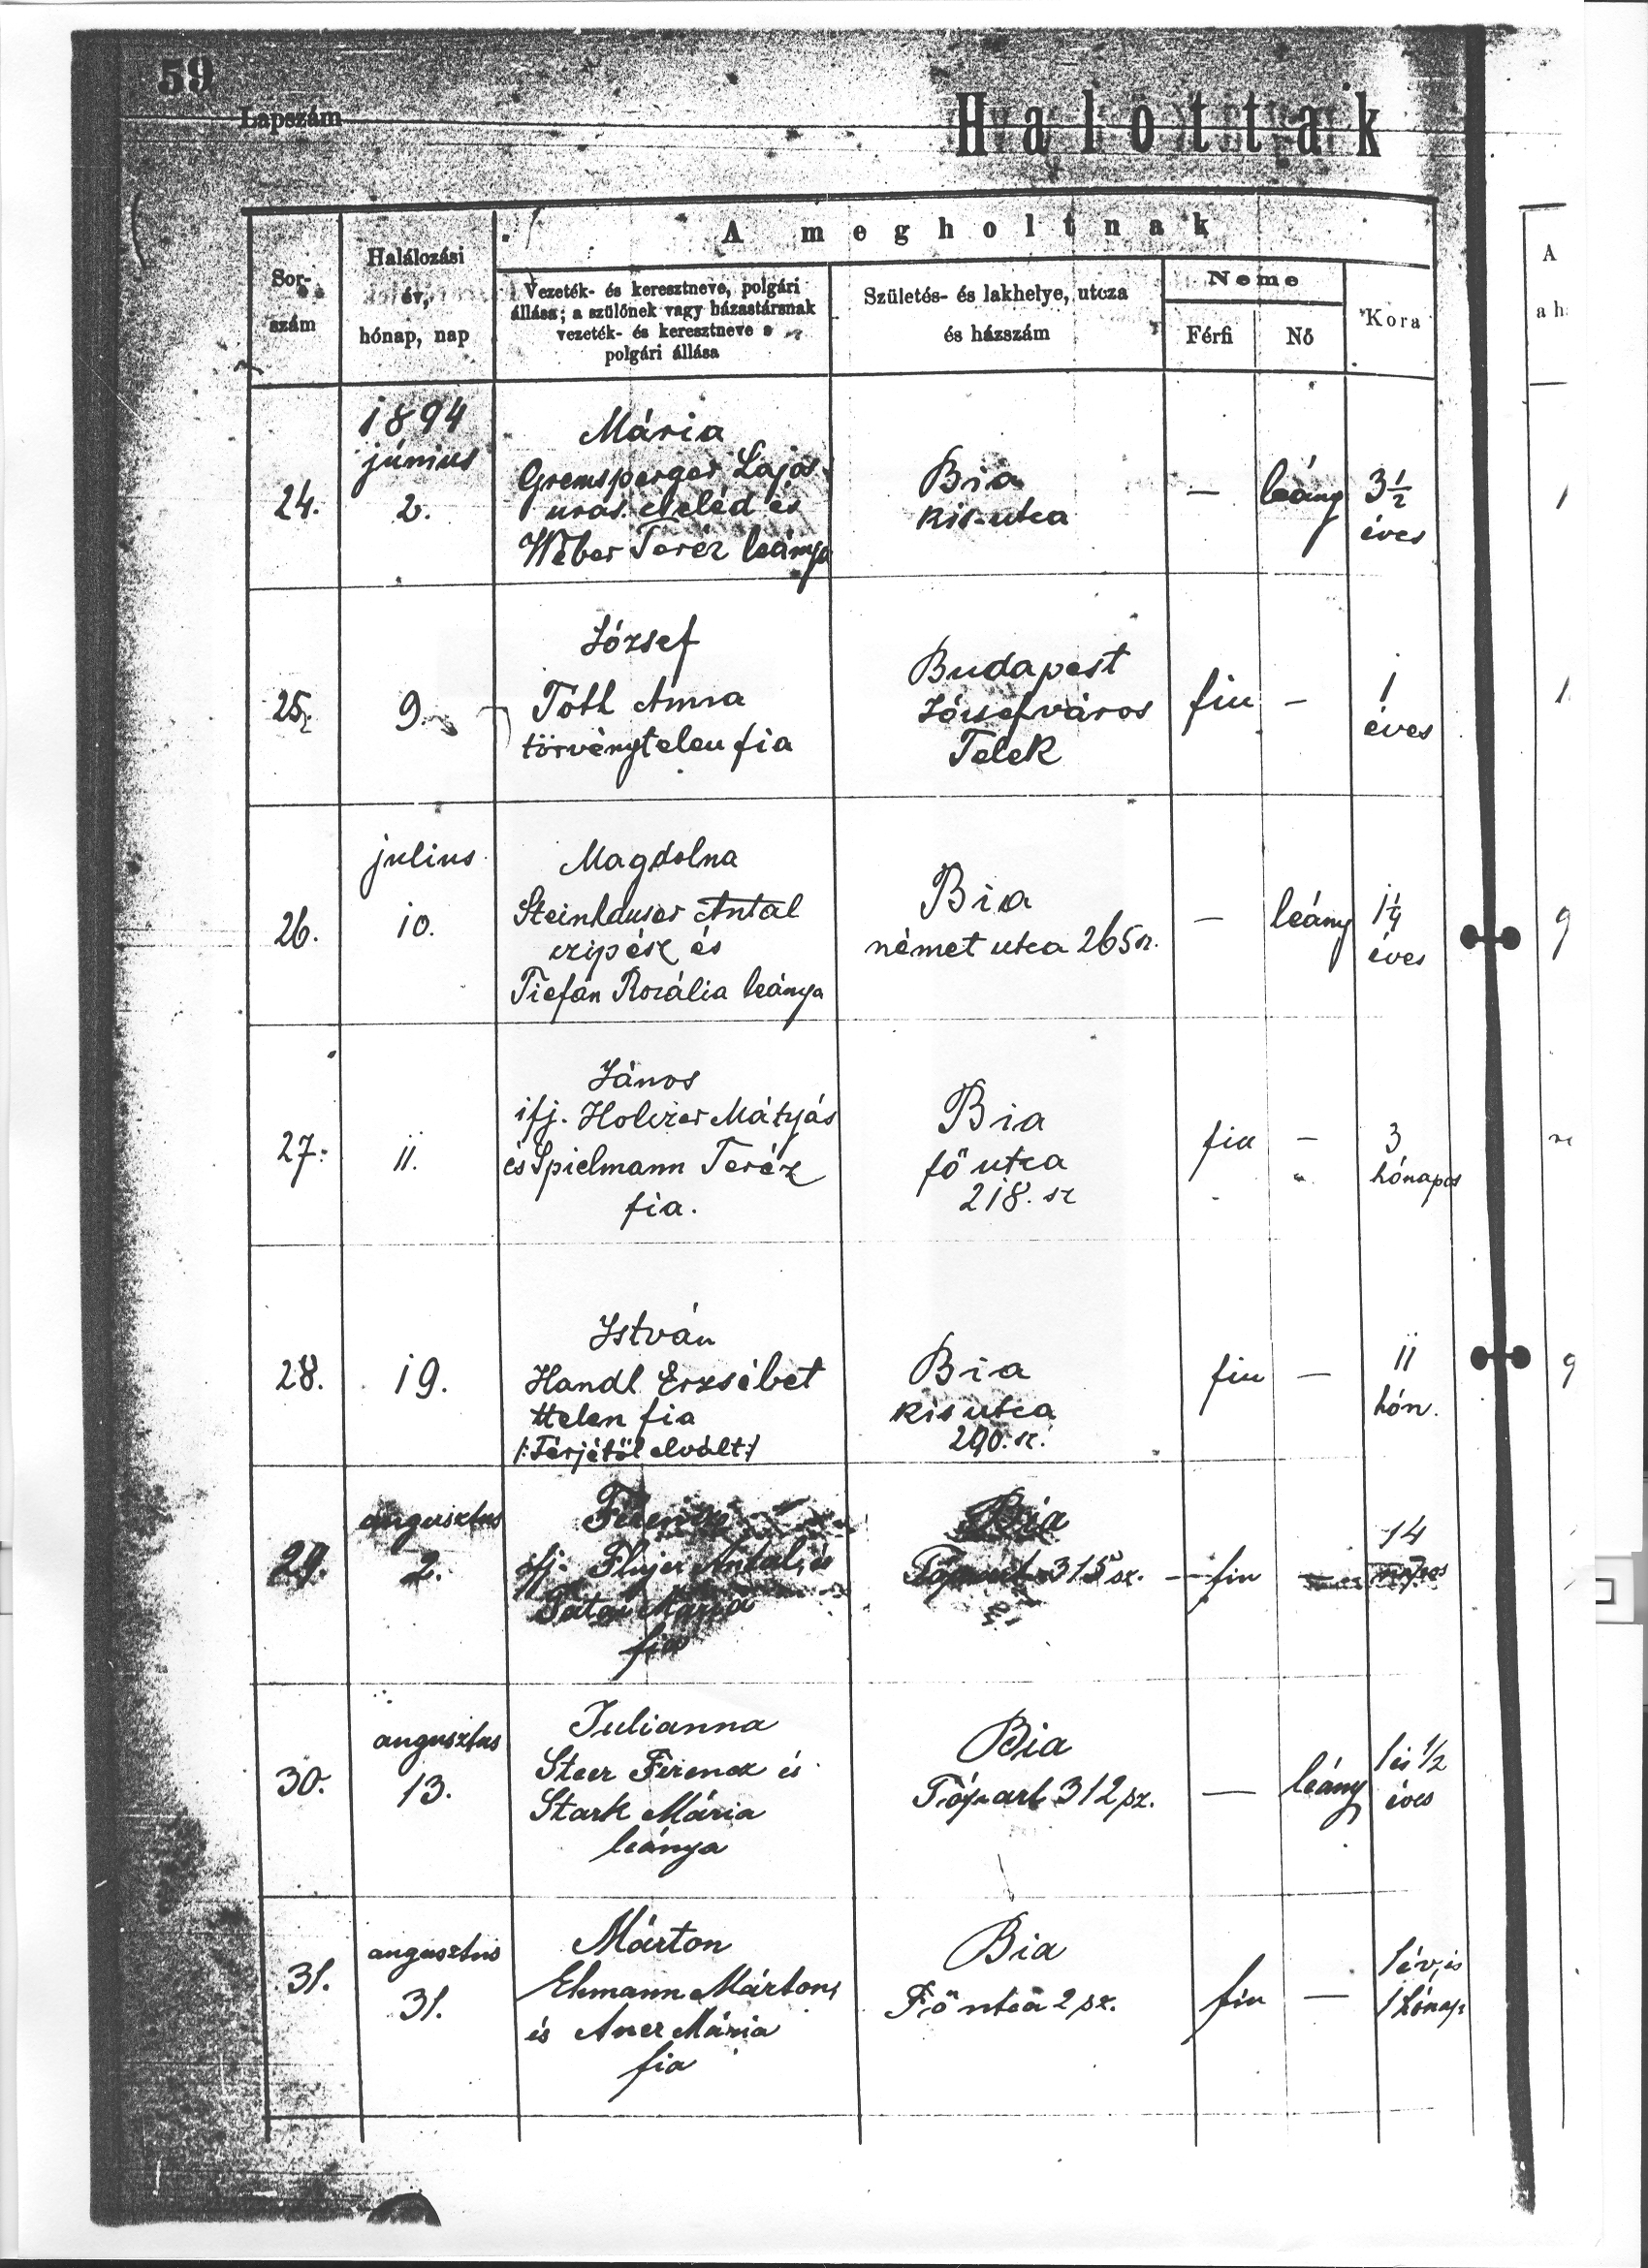 59
Lapszám
Halottak
A megholtnak
Sor-
szám
Halálozási
év,
hónap, nap
Vezeték- és keresztneve, polgári
állása; a szülőnek vagy házastársnak
vezeték- és keresztneve s
polgári állása
Születés- és lakhelye, utcza
és házszám
Neme
Férfi
Nő
Kora
A
a h
24.
1894
június
2.
Mária
Gremsperger Lajos
uras. cseléd és
Wéber Teréz leánya
Bia
kis-utca
—
leány
3 1/2
éves
25.
9.
József
Tóth Anna
törvénytelen fia
Budapest
Józsefváros
Telek
fiu
—
1
éves
26.
julius
10.
Magdolna
Steinhauser Antal
czipész és
Tiefán Rozália leánya
Bia
német utca 265 sz.
—
leány
1 1/4
éves
27.
11.
János
ifj. Holczer Mátyás
és Spielmann Teréz
fia.
Bia
fő utca
218. sz
fiu
—
3
hónapos
28.
19.
István
Handl Erzsébet
ttelen fia
/:Férjétől elvált:/
Bia
kis utca
290. sz.
fiu
—
11
hón.
29.
augusztus
2.
Ferencz
ifj. Antal és
Mária
fia
Bia
Tópart 315 sz.
fiu
14
napos
30.
augusztus
13.
Julianna
Steer Ferencz és
Stark Mária
leánya
Bia
Tópart 312 sz.
—
leány
1 és 1/2
éves
31.
augusztus
31.
Márton
Ehmann Márton
és Auer Mária
fia
Bia
Fő utca 2 sz.
fiu
—
1 év, és
1 hónap